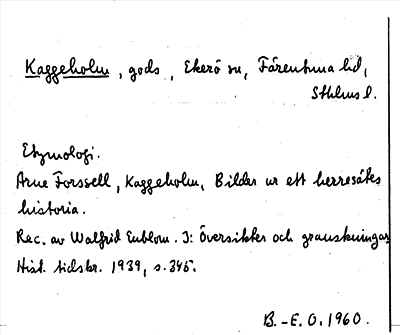 Kaggeholm, gods, Ekerö sn, Färentuna hd,
Sthlms l.
Etymologi.
Arne Forssell, Kaggeholm, Bilder ur ett herresätes
historia.
Rec. av Walfrid Enblom. I: Översikter och granskningar
Hist. tidskr. 1939, s. 345.
B.-E. O. 1960.